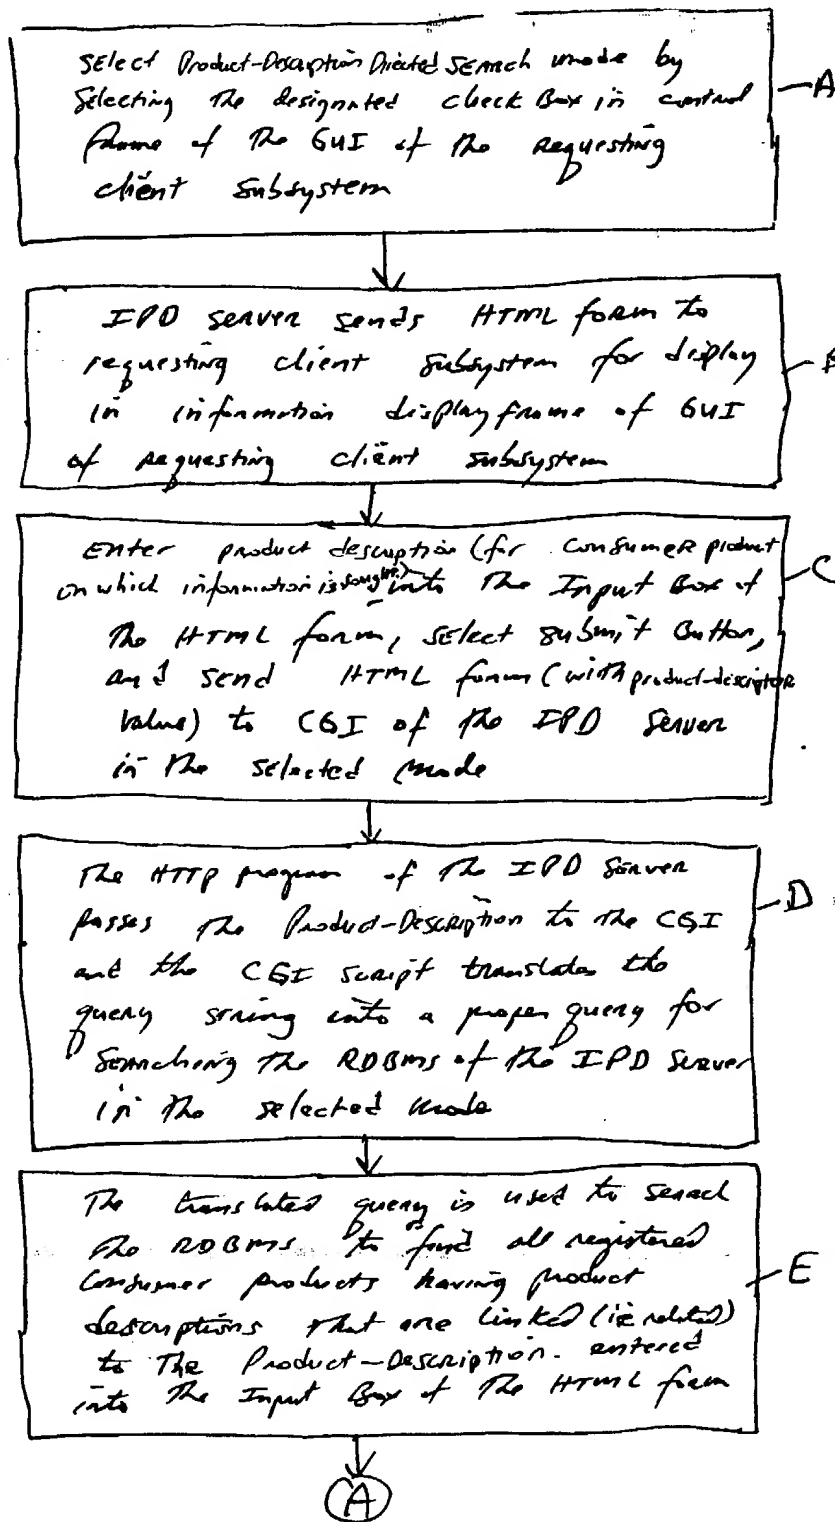 Select Product-Description Directed Search mode by
Selecting the designated check Box in control
frame of the GUI of the requesting
client subsystem
A
IPD server sends HTML form to
requesting client subsystem for display
in information display frame of GUI
of requesting client subsystem
B
Enter product description (for consumer product
on which information is sought) into the Input Box of
The HTML form, select submit Button,
and send HTML form (with product-descriptor
value) to CGI of the IPD Server
in the selected mode
C
The HTTP program of the IPD Server
passes the Product-Description to the CGI
and the CGI script translates the
query string into a proper query for
Searching the RDBMS of the IPD Server
in the selected mode
D
The translated query is used to search
the RDBMS to find all registered
Consumer products having product
descriptions that are linked (ie related)
to The Product-Description entered
into the Input Box of the HTML form
E
A